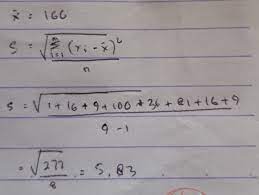 x̄ = 166
S = √ Σ i=1 n (xi - x̄)²
n
S = √ 1+16+9+100+36+81+16+9
9-1
= √ 272
8 = 5,83